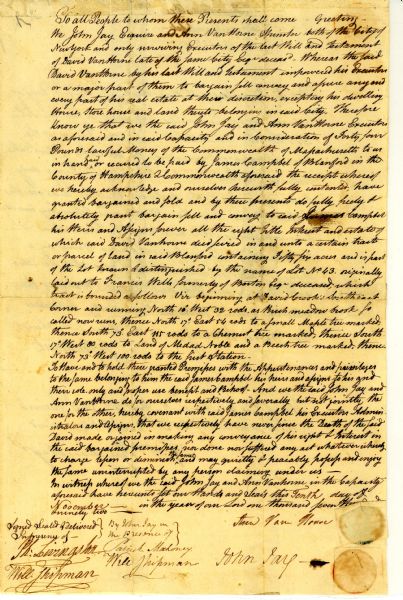 To all People to whom these Presents shall come Greeting
We John Jay Esquire and Ann VanHorne Spinster both of the City of
NewYork and only surviving Executors of the last Will and Testament
of David VanHorne late of the same City Esqr deceasd. Whereas the said
David VanHorne by his last Will and Testament impowered his Executors
or a major part of them to bargain sell convey and assure any and
every part of his real estate at their discretion, excepting his dwelling
House, Store house and Land thereto belonging in said City. Therefore
know ye that we the said John Jay and Ann VanHorne Executors
as aforesaid and in said Capacity and in Consideration of Forty four
Pounds lawful Money of the Commonwealth of Massachusetts to us
in hand or secured to be paid by James Campbel of Blanford in the
County of Hampshire & Commonwealth aforesaid the receipt whereof
we hereby acknowledge and ourselves therewith fully contented, have
granted bargained and sold and by these presents do fully freely &
absolutely grant bargain sell and convey to said James Campbel
his Heirs and Assigns forever all the right title Interest and estate of
which said David Vanhorne died seized in and unto a certain tract
or parcel of Land in said Blanford containing Fifty five acres and is part
of the Lot known & distinguished by the name of Lot No 43. originally
laid out to Francis Wells formerly of Boston Esqr deceased, which
tract is bounded as follows Viz beginning at David Crooks Southeast
Corner and running North 16° West 32 rods, as Birch meadow brook so
called now runs, thence North 17° East 84 rods to a small Maple tree marked,
thence South 73° East 95 rods to a Chesnut tree marked, thence South
17° West 80 rods to Land of Medad Noble and a Beech tree marked, thence
North 73° West 100 rods to the first Station.
To Have and to hold these granted Premises with the Appurtenances and privileges
to the same belonging to him the said James Campbel his heirs and assigns forever and
their sole, only and proper use benefit and Behoof. And we the said John Jay and
Ann VanHorne do for ourselves respectively and severally but not jointly, the
one for the other, hereby covenant with said James Campbel his Executors Admin
istrators and Assigns, that we respectively have never since the Death of the said
David made or joined in making any conveyance of his right & Interest in
the said bargained premises, nor done nor suffered any act whatever whereby
to charge upon or diminish the same and may quietly & peaceably possess and enjoy
the same uninterrupted by any person claiming under us —
In witness whereof we the said John Jay and Ann Vanhorne, in the Capacity
aforesaid have hereunto set our Hands and Seals this Tenth day of
November — in the years of our Lord one thousand seven hundred
ninety five
Signed Sealed & delivered
In presence of
By John Jay in
the Presence of
Ann Van Horne
Patrick Mahoney
Will Shipman
John Jay
Will Shipman